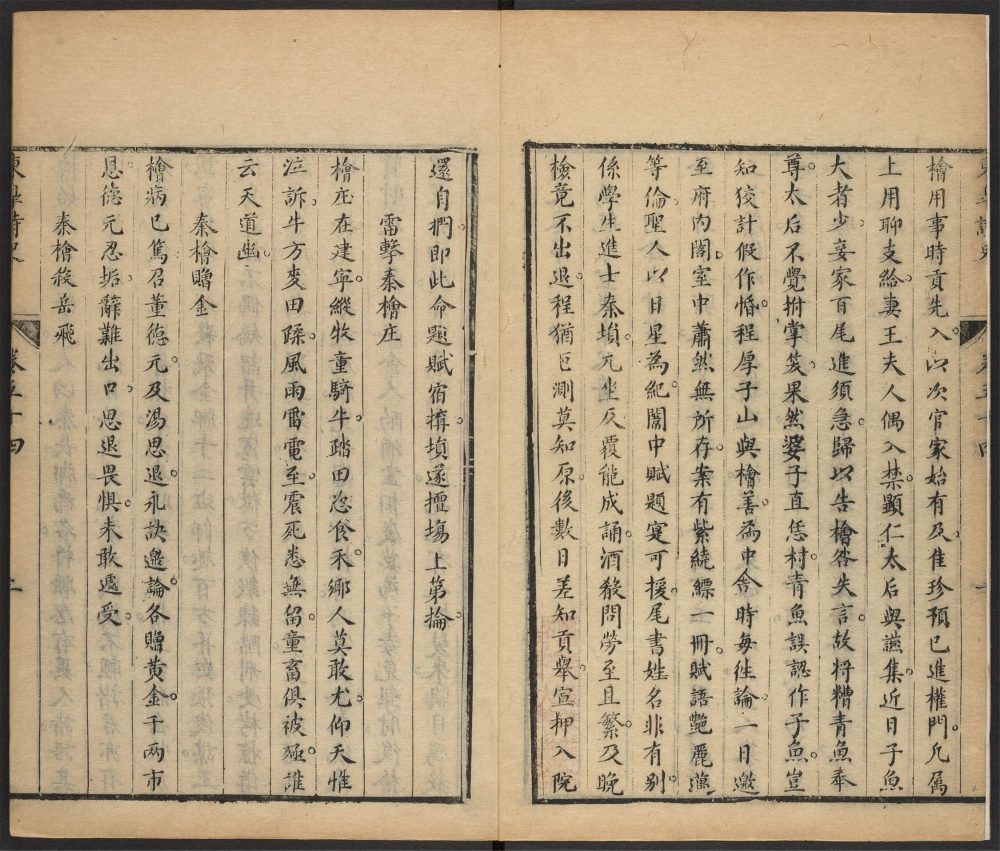 檜用事時貢先入以次官家始有及佳珍預已進權門凡属
上用聊支給妻王夫人偶入禁顯仁太后與讌集近日子魚
大者少妾家百尾進須急歸以告檜咎失言故将糟青魚奉
尊太后不覺拊掌笑果然婆子直恁村青魚誤認作子魚豈
知狡計假作惛程厚子山與檜善為中舍時毎徃論一日邀
至府内閣室中蕭然無所存案有紫繞縹一冊賦語艷麗蘊
等倫聖人以日星為紀閣中賦題寔可援尾書姓名非有别
係學生進士秦塤兀坐反覆能成誦酒殽問勞至且繁及晚
檜竟不出退程猶叵測莫知原後數日差知貢舉宣押入院
還自捫即此命題賦宿搆塤遂擅塲上第掄
雷擊秦檜庄
檜庄在建寧縱牧童騎牛踏田恣食禾鄉人莫敢尤仰天惟
泣訴牛方麥田蹂風雨雷電至震死悉無留童畜俱被殛誰
云天道幽
秦檜贈金
檜病已篤召董德元及湯思退永訣邀論各贈黄金千两市
恩德元忍垢辭難出口思退畏惧未敢遽受
秦檜殺岳飛
卷五十四
二